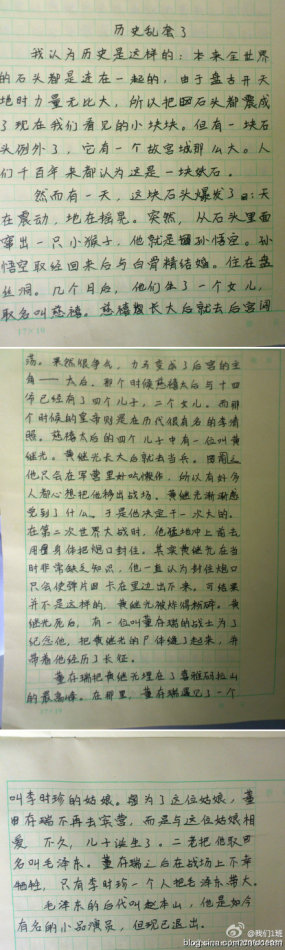 历史乱套了
我认为历史是这样的：本来全世界
的石头都是连在一起的，由于盘古开天
地时力量无比大，所以把石头都震成
了现在我们看见的小块块。但有一块石
头例外了，它有一个故宫城那么大。人
们千百年来都认为这是一块妖石。
然而有一天，这块石头爆发了：天
在震动，地在摇晃。突然，从石头里面
窜出一只小猴子，他就是孙悟空。孙
悟空取经回来后与白骨精结婚。住在盘
丝洞。几个月后，他们生了一个女儿，
取名叫慈禧。慈禧长大后就去后宫闯
17×19
荡。果然很争气，力马变成了后宫的主
角——太后。那个时候慈禧太后与十四
爷已经有了四个儿子，二个女儿。而那
个时候的皇帝则是在历代很有名的李清
照。慈禧太后的四个儿子中有一位叫黄
继光。黄继光长大后就去当兵。
他只会在军营里好吃懒作，所以有好多
人都心想把他移出战场。黄继光渐渐感
受到了什么。于是他决定干一次大的。
在第二次世界大战时，他猛地冲上前去
用身体把炮口封住。其实黄继光在当
时非常缺乏知识，他一直认为封住炮口
只会使弹片卡在里边出不来。可结果
并不是这样的，黄继光被炸得粉碎。黄
继光死后，有一位叫董存瑞的战士为了
纪念他，把黄继光的尸体缝了起来，并
带着他经历了长征。
董存瑞把黄继光埋在了喜雅码拉山
的最高峰。在那里，董存瑞遇见了一个
17×19
叫李时珍的姑娘。因为了这位姑娘，董
存瑞不再去军营，而是与这位姑娘相
爱。不久，儿子诞生了。二老把他取
名叫毛泽东。董存瑞之后在战场上不幸
牺牲，只有李时珍一个人把毛泽东带大。
毛泽东的后代叫赵本山，他是如今
有名的小品演员，但现已退出。
@我们1班